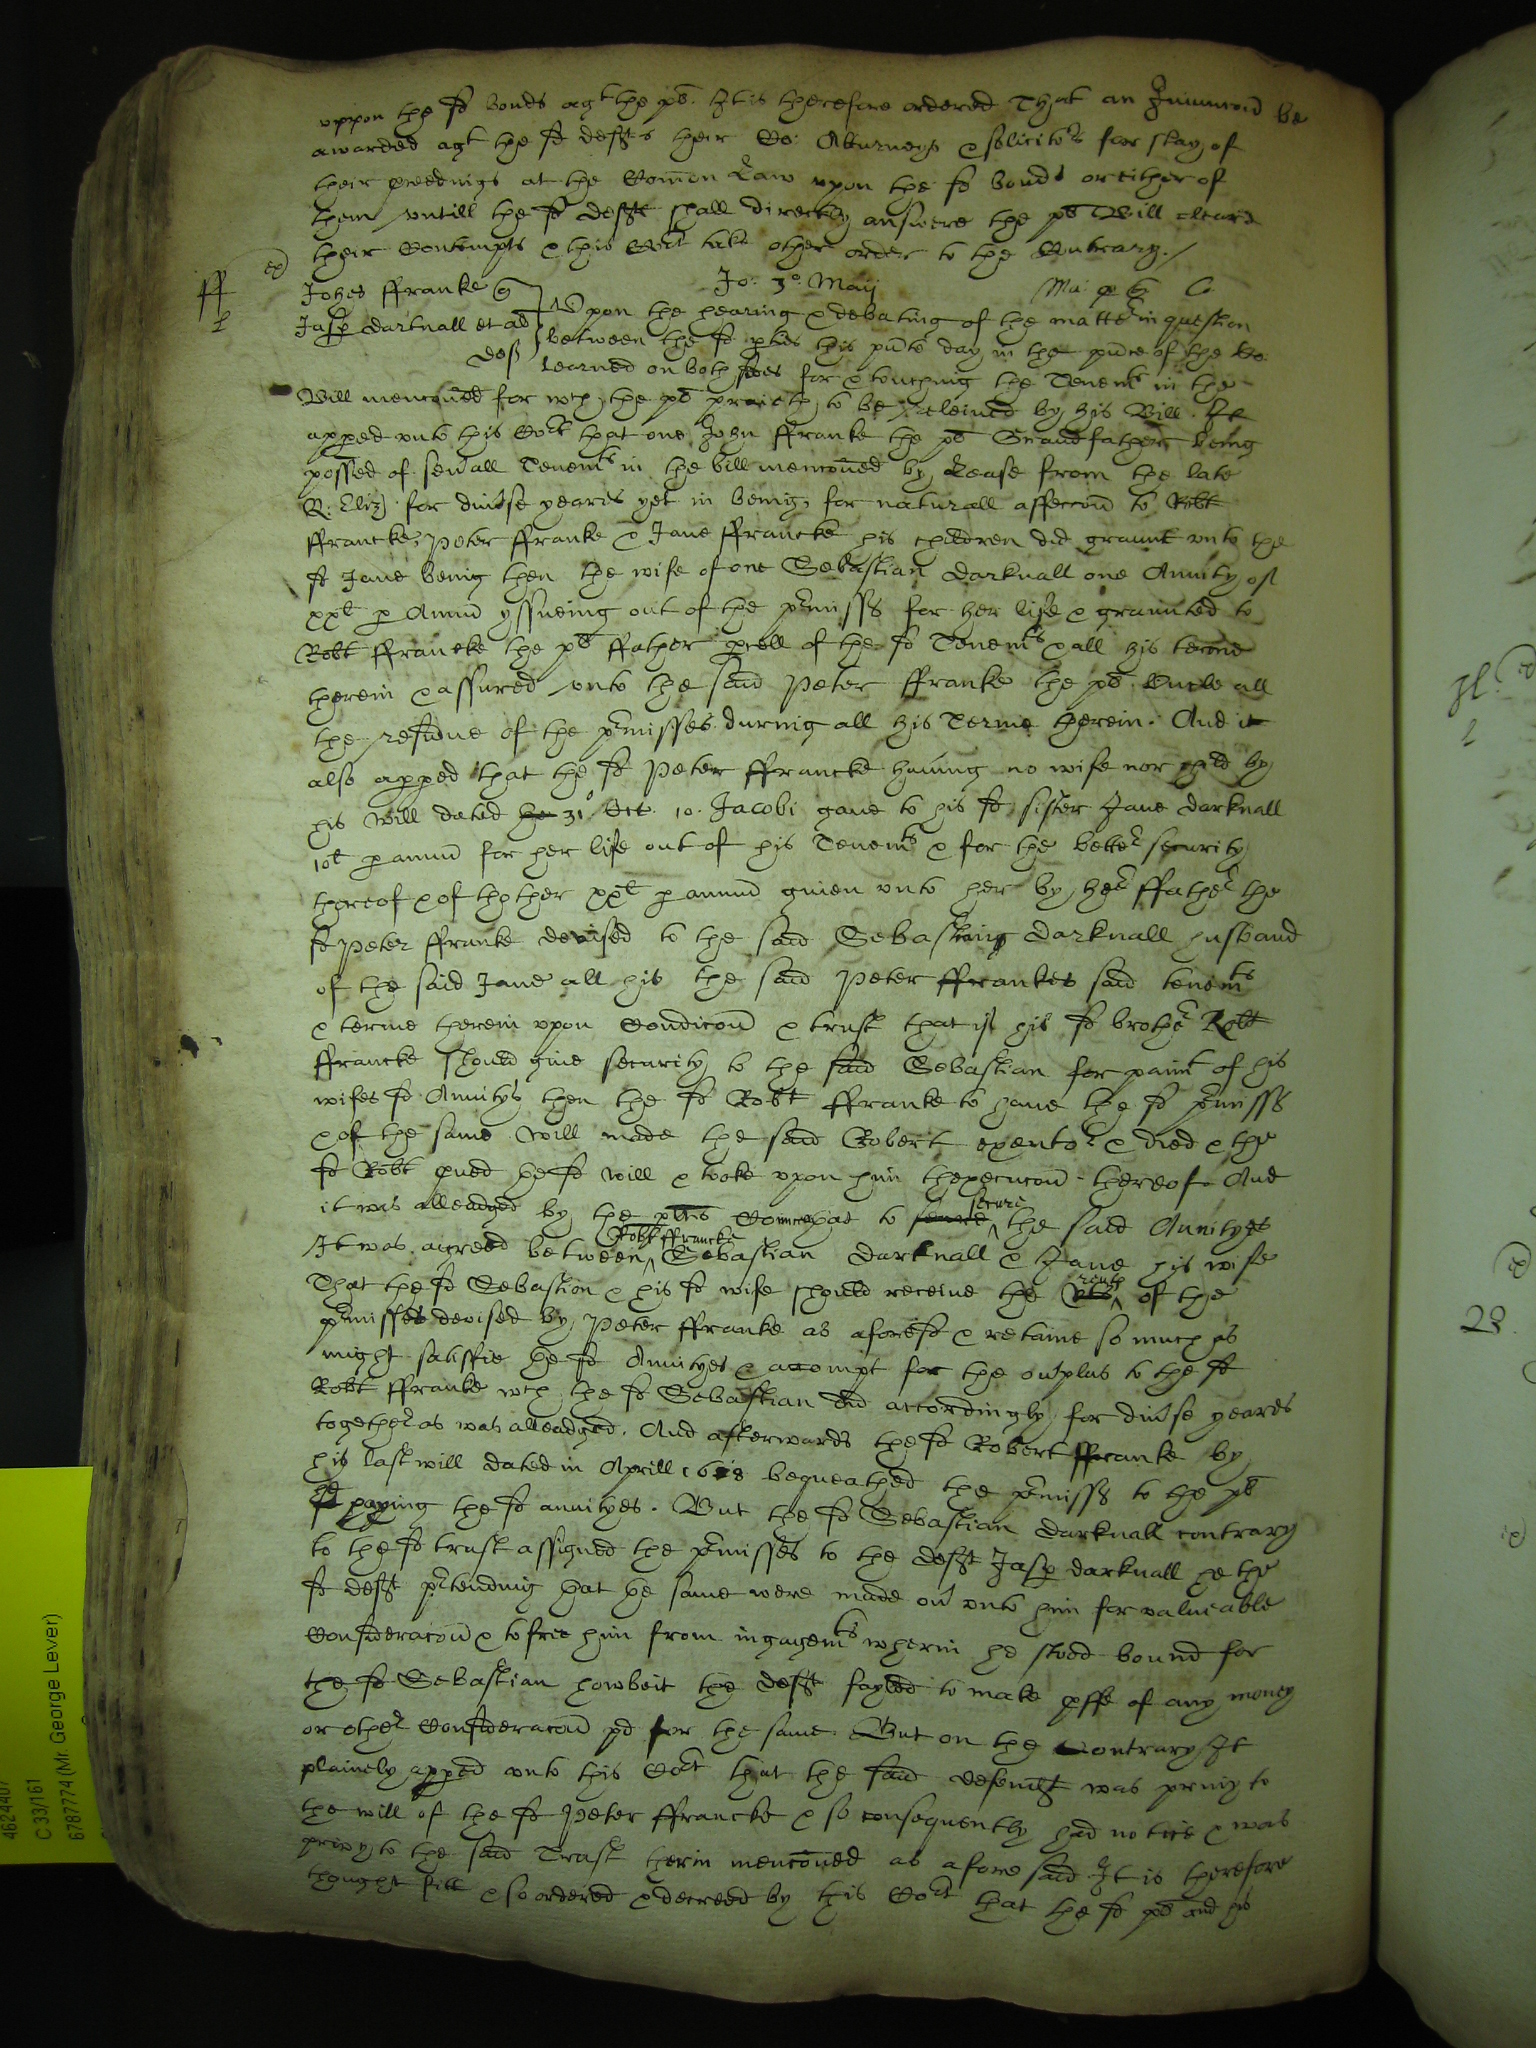 vppon the sd bonds agt the pl. It is therefore ordered That an Iniunccon be
awarded agt the sd defts their Co: Atturneys & solicitrs for stay of
their pceedings at the Comon Law vpon the sd bonds or either of
them vntill the sd defts shall directly answere the pl Bill cleare
their Contempts & this Cort take other order to the Contrary./
Jo: 3o. Maij
Johes ffranke q
Jasp darknall et al
def
Vpon the hearing & debating of the matter in question
between the sd pties this pnte day in the pnce of the Co:
learned on both sides for & touching the Tenemts in the
Bill menconed for wch the pl prayeth to be releiued by his Bill. It
apped vnto this Cort that one John ffranke the pl Grandfather being
possed of seuall Tenemts in the bill menconed by Lease from the late
Q: Eliz: for diuse yeares yet in being, for naturall affeccon to Robt
ffrancke, Peter ffranke & Jane ffrancke his children did graunt vnto the
sd Jane being then the wife of one Sebastian darknall one Anuity of
xxl p Annu yssueing out of the pmisss for her life & graunted to
Robt ffrancke the pl ffather pcell of the sd Tenemts & all his terme
therein & assured vnto the said Peter ffranke the pl Vncle all
the residue of the pmisses during all his Terme therein. And it
also apped that the sd Peter ffrancke hauing no wife nor child by
his will dated the 31o Oct. 10. Jacobi gaue to his sd sister Jane darknall
10l p annu for her life out of his Tenemts & for the better security
thereof & of thother xxl p annu giuen vnto her by her ffather the
sd Peter ffranke devised to the said Sebastian darknall husband
of the said Jane all his the said Peter ffrankes said tenemts
& terme therein vpon Condicon & trust that if his sd brother Robt
ffrancke should giue security to the said Sebastian for paimt of his
wifes sd Anuitys then the sd Robt ffranke to haue the sd pmisss
& of the same will made the said Robert executor & died & the
sd Robt pued the sd will & tooke vpon him thexecucon thereof. And
it was alleadged by the pltis Councell that to secure the said Anuityes
It was agreed between Robt ffrancke Sebastian darknall & Jane his wife
That the sd Sebastian & his sd wife should receiue the rents of the
pmisses devised by Peter ffranke as aforesd & retaine so much as
might satisfie the sd Anuityes & accompt for the ouplus to the sd
Robt ffranke wch the sd Sebastian did accordingly for diuse yeares
together as was alleadged. And afterwards the sd Robert ffranke by
his last will dated in Aprill 1618 bequeathed the pmisss to the pl
paying the sd anuityes. But the sd Sebastian darknall contrary
to the sd trust assigned the pmisses to the deft Jasp darknall he the
sd deft ptending that the same were made ou vnto him for valueable
Consideracon & to free him from ingagemts wherin he stood bound for
the sd Sebastian howbeit the deft fayled to make pffe of any money
or other Consideracon pd for the same. But on the Contrary It
plainely apped vnto this Cort that the said defendt was privy to
the will of the sd Peter ffrancke & so consequently had notice & was
privy to the said Trust therin menconed as afore said It is therefore
thought fitt & so ordered & decreed by this Cort that the sd pl and his
4624407
C 33/161
6787774 (Mr. George Lever)